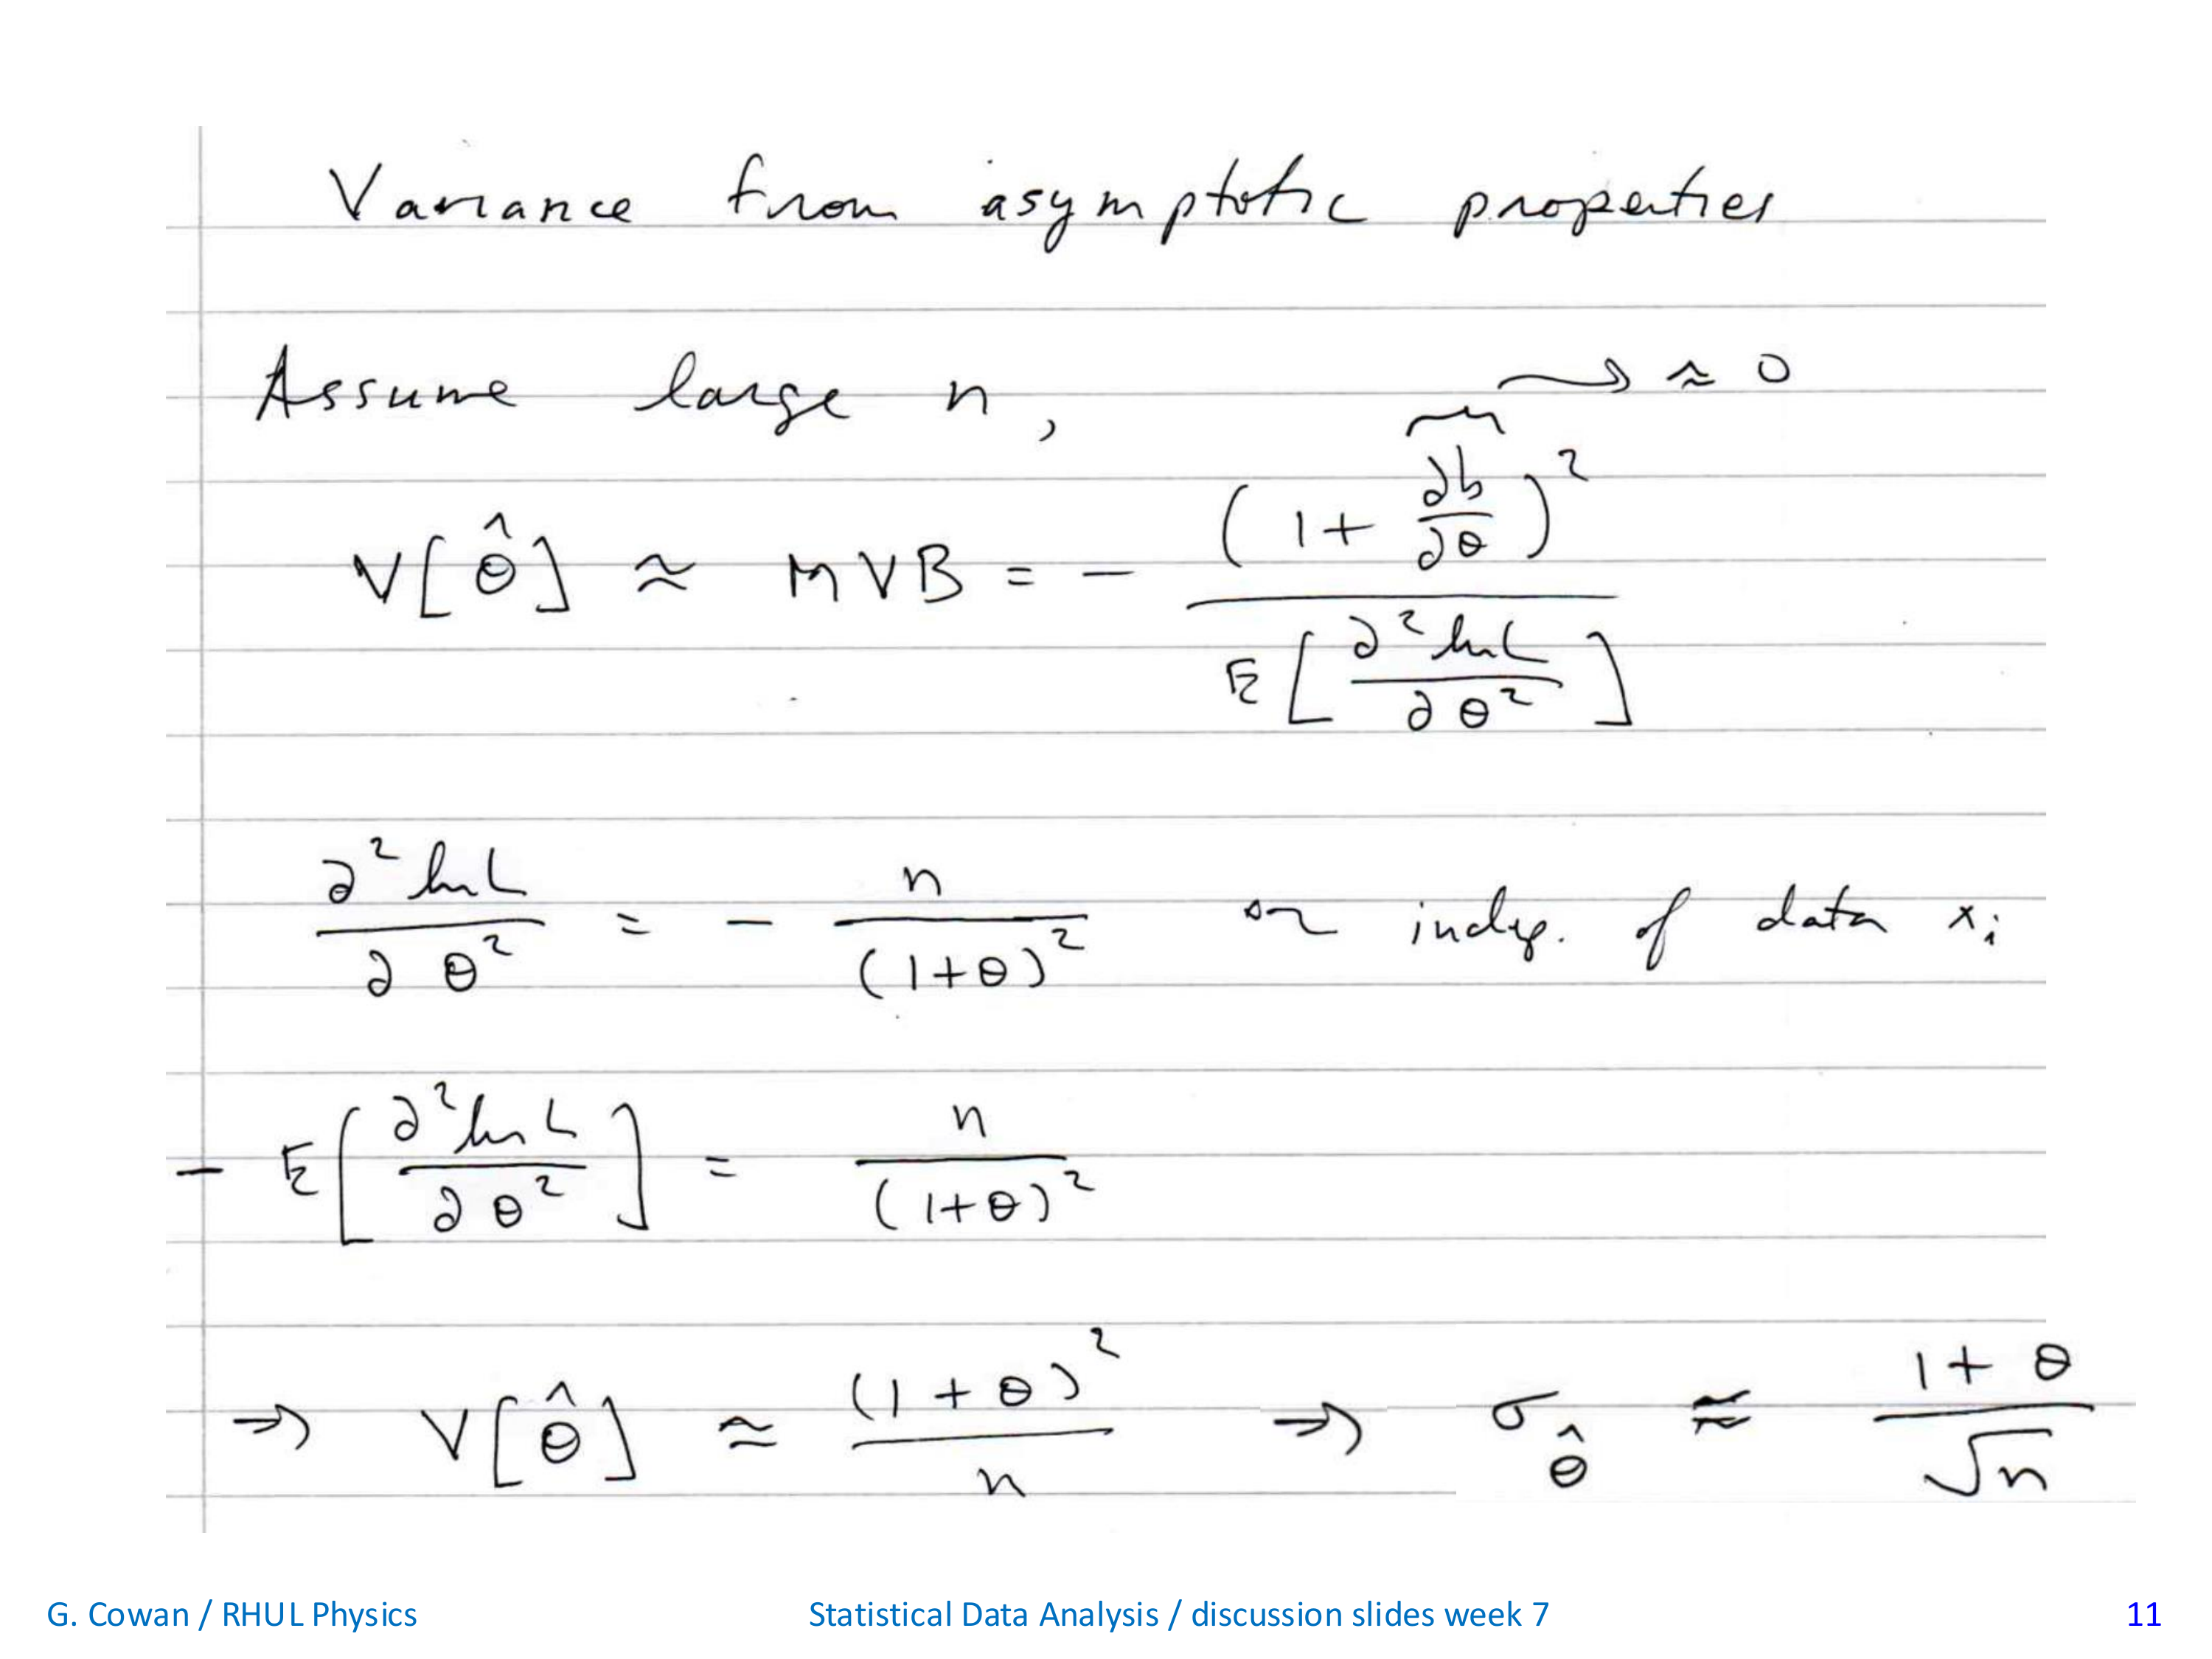 Variance from asymptotic properties
Assume large n, ≈ 0
V[θ̂] ≈ MVB = - (1 + ∂b/∂θ)² / E[∂² ln L / ∂θ²]
∂² ln L / ∂θ² = - n / (1+θ)² ~ indep. of data xᵢ
- E[∂² ln L / ∂θ²] = n / (1+θ)²
⇒ V[θ̂] ≈ (1+θ)² / n ⇒ σ_θ̂ ≈ 1+θ / √n
G. Cowan / RHUL Physics Statistical Data Analysis / discussion slides week 7 11